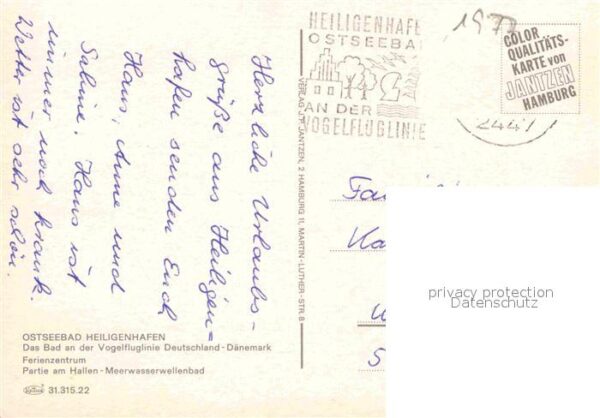 Herzliche Urlaubs-
grüße aus Heiligen=
hafen senden Euch
Hans, Anne und
Sabine. Hans ist
immer noch krank.
Wetter ist sehr schön.
OSTSEEBAD HEILIGENHAFEN
Das Bad an der Vogelfluglinie Deutschland - Dänemark
Ferienzentrum
Partie am Hallen - Meerwasserwellenbad
31.315.22
VERLAG JANTZEN, 2 HAMBURG 11, MARTIN-LUTHER-STR. 8
HEILIGENHAFE
OSTSEEBA
AN DER
VOGELFLUGLINIE
COLOR
QUALITÄTS-
KARTE von
JANTZEN
HAMBURG
2447
privacy protection
Datenschutz